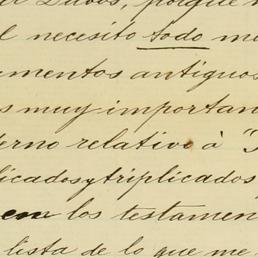 Dubos, porque
necesito todo
mentos antiguos
muy importan
erno relativo à "
licados y triplicados
em los testamen
lista de lo que me